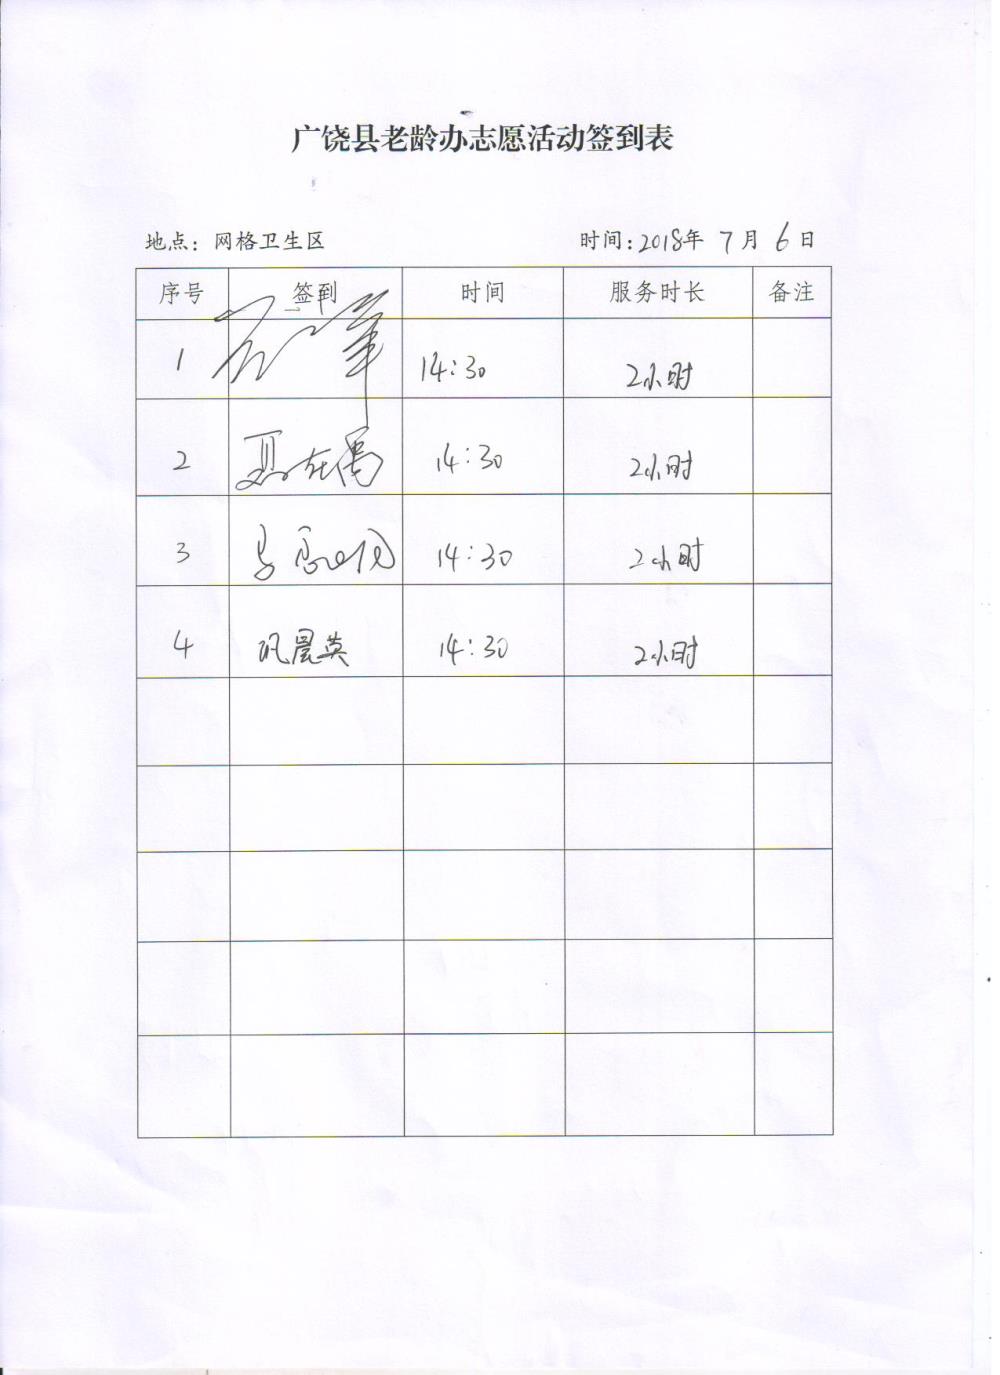 广饶县老龄办志愿活动签到表
地点：网格卫生区 时间：2018年 7月 6日
序号 签到 时间 服务时长 备注
1 14:30 2小时
2 14:30 2小时
3 14:30 2小时
4 巩晨英 14:30 2小时